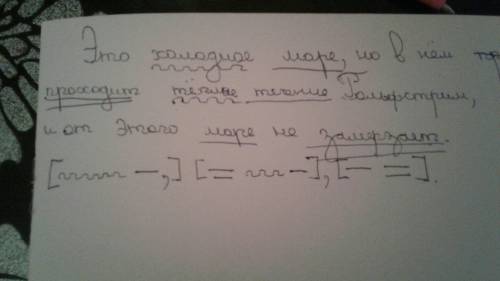 Это холодное море, но в нём
проходит тёплое течение Гольфстрим,
и от этого море не замерзает.
[~~~~ –,] [= ~~~ –], [– =].